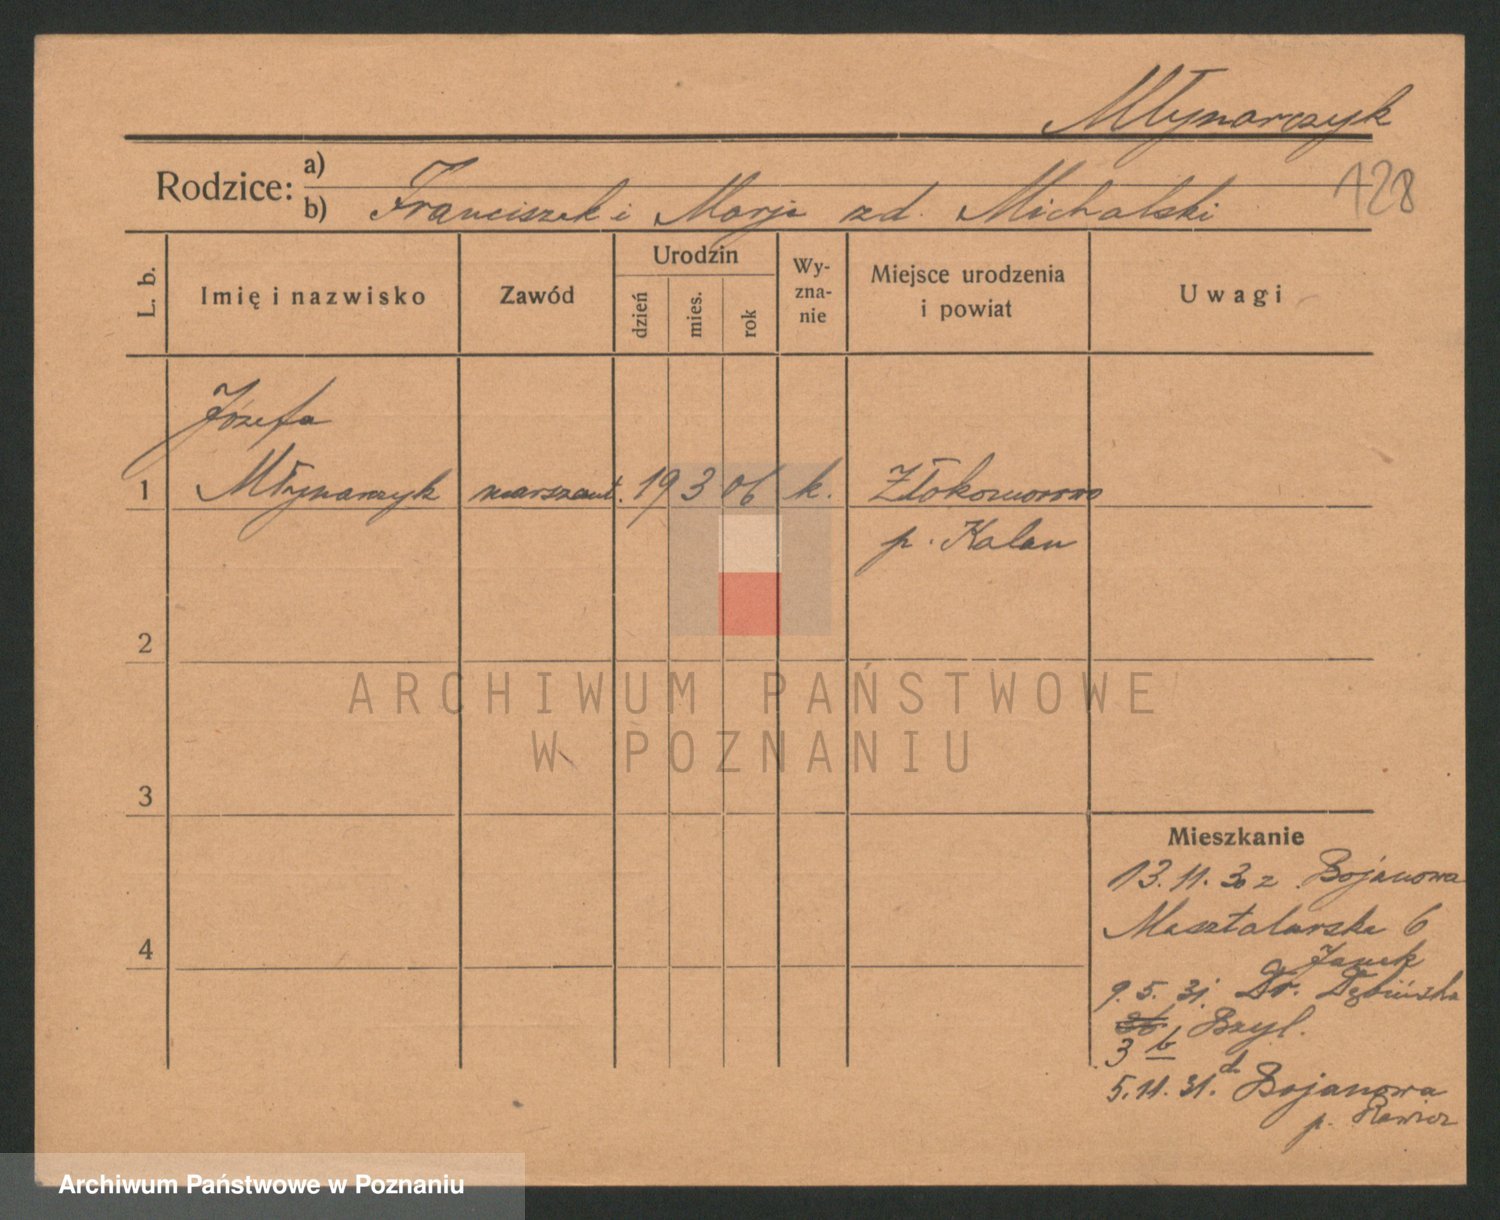 Młynarczyk
128
Rodzice: a)
b) Franciszek i Marja zd. Michalski
L. b.
Imię i nazwisko
Zawód
Urodzin
dzień
mies.
rok
Wy-
zna-
nie
Miejsce urodzenia
i powiat
Uwagi
Józefa
1 Młynarczyk 19 3 06 k. Złokomorowo
p. Kalau
2
3
4
ARCHIWUM PAŃSTWOWE
W POZNANIU
Mieszkanie
13. 11. 30 z Bojanowa
Masztalarska 6
Janek
9. 5. 31. Dr. Dębińska
3 b Bzyl.
5. 11. 31. d. Bojanowa
p. Rawicz
Archiwum Państwowe w Poznaniu